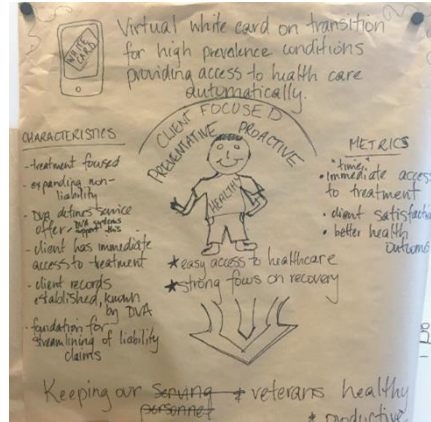 WHITE CARD
Virtual white card on transition
for high prevalence conditions
providing access to health care
automatically.
CLIENT FOCUSED
PREVENTATIVE PROACTIVE
HEALTH
CHARACTERISTICS
- treatment focused
- expanding non-
liability
- DVA defines service
offer
DVA systems
support this
- client has immediate
access to treatment
- client records
established, known
by DVA
- foundation for
streamlining of liability
claims
METRICS
• "time"
• Immediate access
to treatment
• client satisfaction
• better health
outcomes
★ easy access to healthcare
★ strong focus on recovery
Keeping our serving + veterans healthy
personnel
* productive